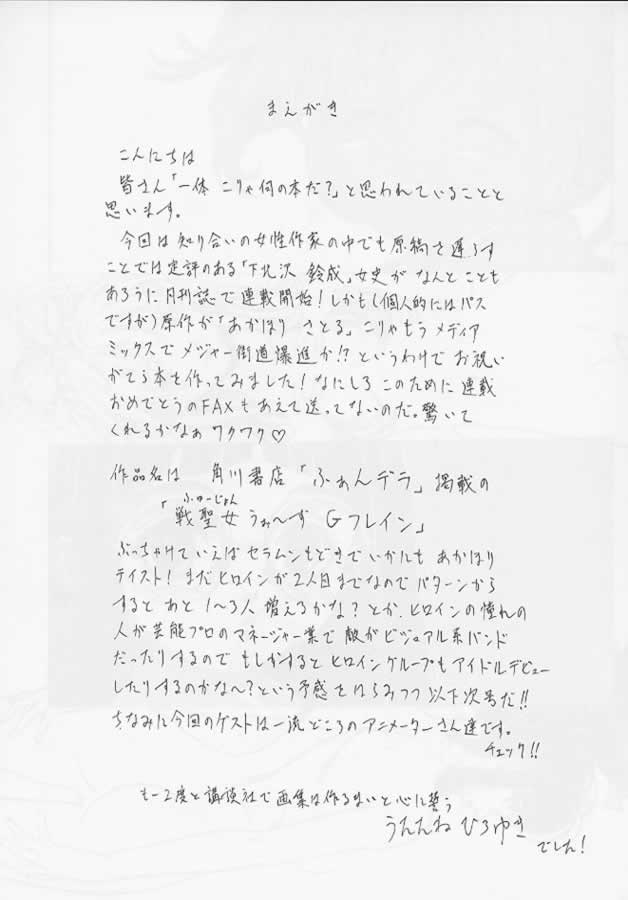 まえがき
こんにちは
皆さん「一体 こりゃ何の本だ?」と思われていることと
思います。
今回は知り合いの女性作家の中でも原稿を遅らす
ことでは定評のある「下北沢 鈴成」女史が なんと こども
あろうに 月刊誌で連載開始!しかも(個人的にはパス
ですが)原作が「あかほり さとる」こりゃもう メディア
ミックスで メジャー街道爆進か!?というわけで お祝い
がてら本を作ってみました!なにしろ このために 連載
おめでとうのFAXもあえて送ってないのだ。驚いて
くれるかなぁ ワクワク♡
作品名は 角川書店「ふぁんデラ」掲載の
ふゅーじょん
「戦聖女 うぉ〜ず Gフレイン」
ぶっちゃけていえば セラムンもどきで いかにも あかほり
テイスト! まだヒロインが2人目までなので パターンから
すると あと 1〜3人 増えるかな? とか、ヒロインの憧れの
人が芸能プロのマネージャー業で 敵がビジュアル系バンド
だったりするので もしかすると ヒロイングループも アイドルデビュー
したりするのかな〜?という予感をはらみつつ 以下次号だ!!
ちなみに今回のゲストは一流どころのアニメーターさん達です。
チェック!!
もー2度と講談社で画集は作るまいと心に誓う
うたたね ひろゆき
でした!